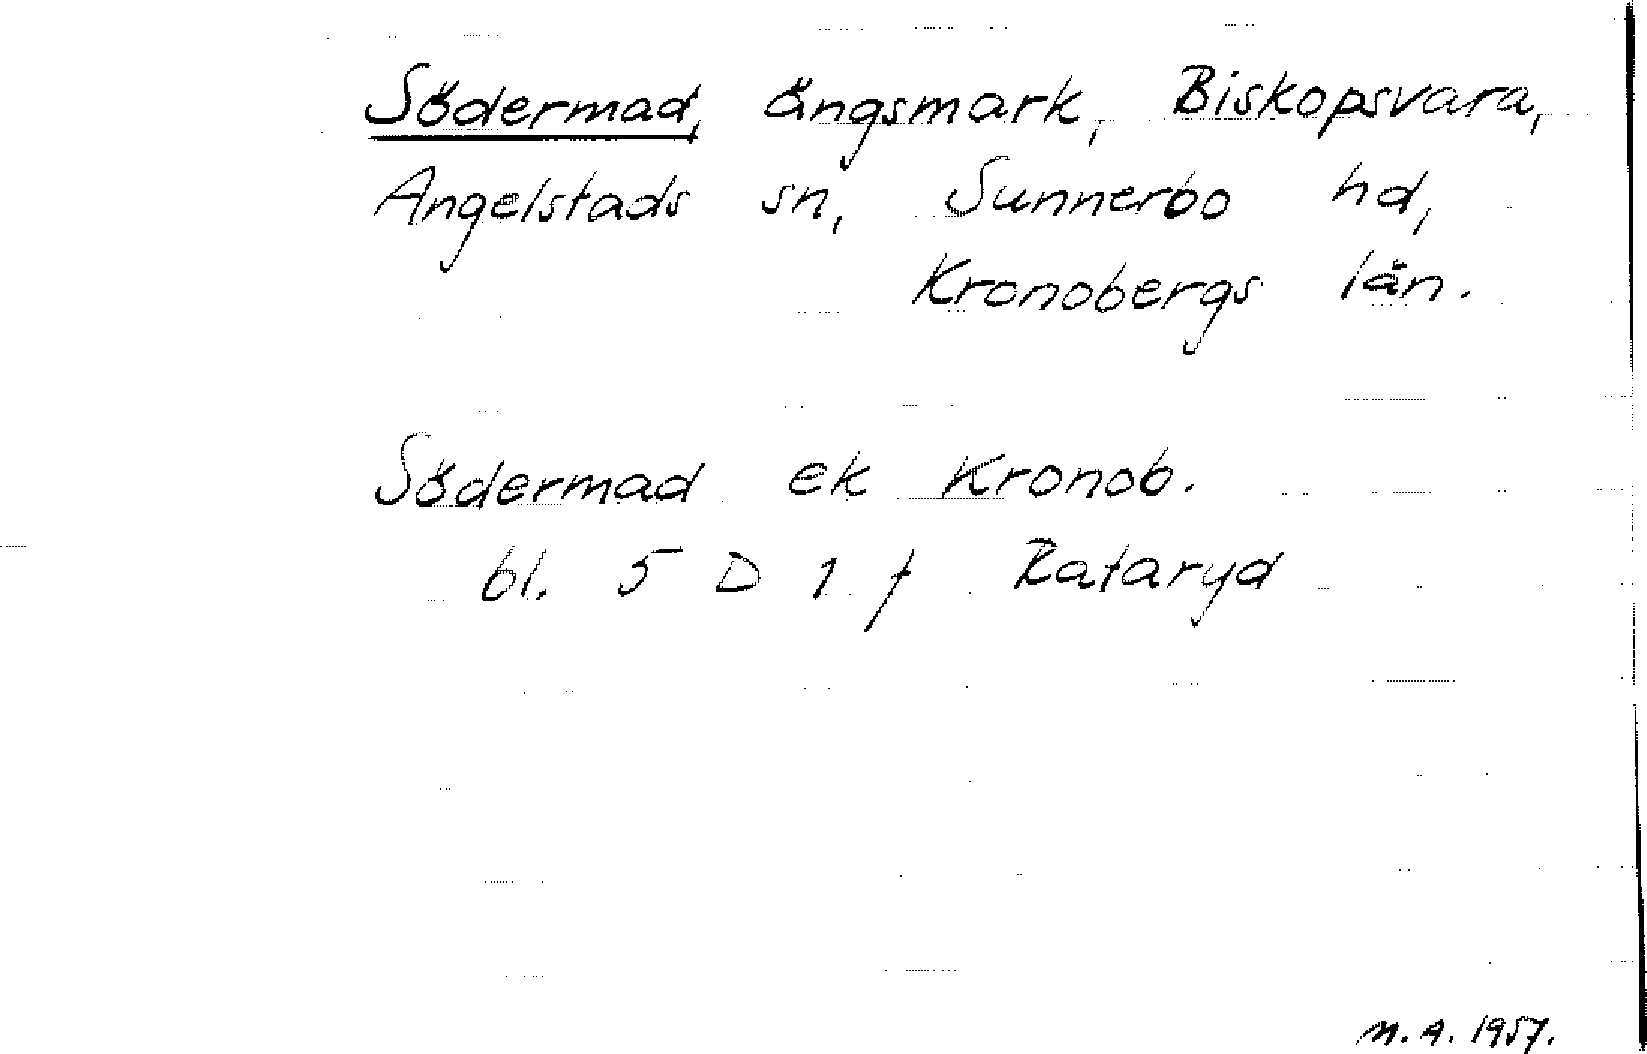 Södermad, ängsmark, Biskopsvara,
Angelstads sn, Sunnerbo hd,
Kronobergs län.
Södermad ek Kronob.
bl. 5 D 1 f Rataryd
M. A. 1957.